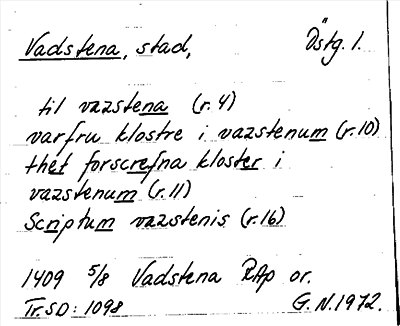 Vadstena, stad, Östg. 1.
til vazstena (r. 4)
varfru klostre i vazstenum (r. 10)
thet forscrefna kloster i
vazstenum (r. 11)
Scriptum vazstenis (r. 16)
1409 5/8 Vadstena RAp or.
Tr. SD: 1098 G. N. 1972.